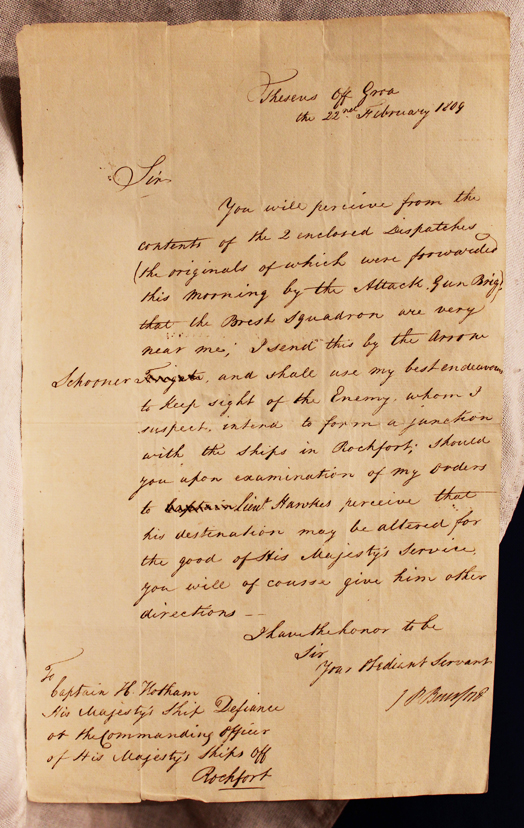 Theseus off Groa
the 22nd February 1809
Sir
You will perceive from the
contents of the 2 inclosed Dispatches
(the originals of which were forwarded
this morning by the Attack Gun Brig)
that the Brest Squadron are very
near me; I send this by the Arrow
Schooner, and shall use my best endeavours
to keep sight of the Enemy, whom I
suspect, intend to form a junction
with the ships in Rochfort; should
you upon examination of my orders
to Captain Lieut Hawkes perceive that
his destination may be altered for
the good of His Majesty's Service
you will of course give him other
directions --
I have the honor to be
Sir
Your Obediant Servant
J P Beresford
To
Captain H. Hotham
His Majesty's Ship Defiance
or the Commanding Officer
of His Majesty's Ships off
Rochfort